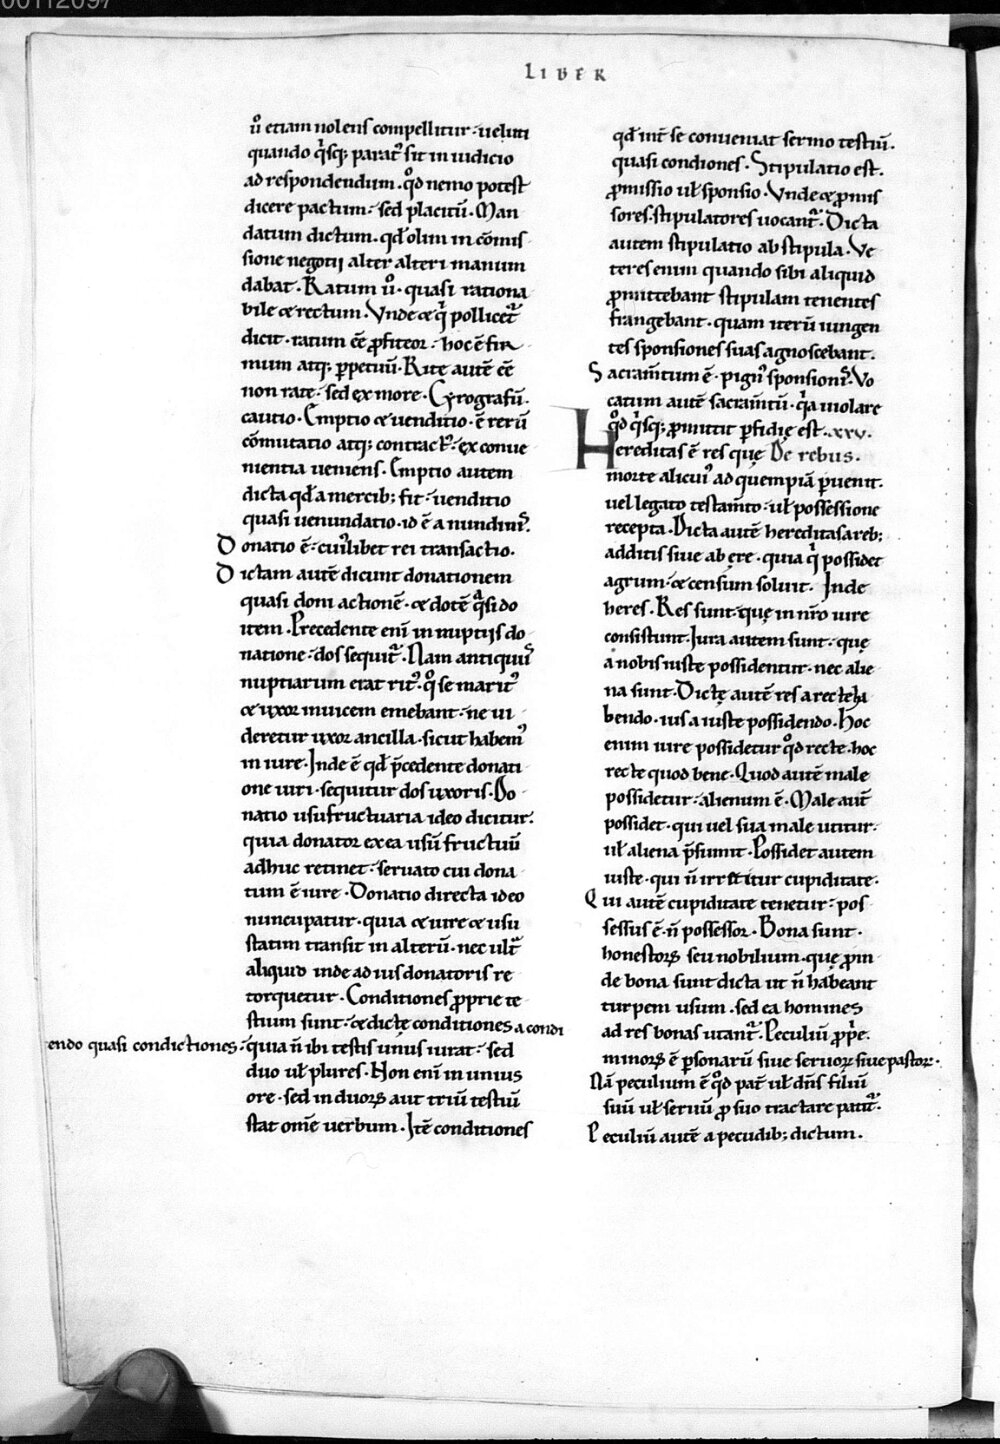 00112097
LIBER
ũ etiam nolens compellitur· ueluti
quando q̇sq; parat᾿ sit in iudicio
ad respondendum· qd̾ nemo potest
dicere pactum· sed placitũ· Man
datum dictum· qd̾ olim in cõmis
sione negotij alter alteri manum
dabat· Ratum ũ· quasi rationa
bile & rectum· Vnde & q̇ pollicet᷑
dicit· ratum ẽẽ ꝓfiteor· hoc ẽ fir
mum atq; ꝑpetuũ· Rite autẽ ẽẽ
non rate· sed ex more· Cyrografũ·
cautio· Emptio & uenditio· ẽ rerũ
cõmutatio atq; contract᾿· ex conue
nientia ueniens· Emptio autem
dicta qd̾ a mercib; fit· uenditio
quasi uenundatio· id ẽ a nundinis·
Donatio ẽ· cui᾿libet rei transactio·
Dictam autẽ dicunt donationem
quasi doni actionẽ· & dotẽ q̾si do
item· Precedente eni̅ in nuptijs do
natione· dos sequit᷑· Nam antiquus
nuptiarum erat rit᾿· qͦ se marit᾿
& uxor inuicem emebant· ne ui
deretur uxor ancilla· sicut habem᾿
in iure· Inde ẽ qd̾ p̄cedente donati
one uiri· sequitur dos uxoris· Do
natio usufructuaria ideo dicitur·
quia donator ex ea usũ fructuũ
adhuc retinet· seruato cui dona
tum ẽ iure· Donatio directa ideo
nuncupatur· quia & iure & usu
statim transit in alterũ· nec ult̾
aliquid inde ad ius donatoris re
torquetur· Conditiones ꝓprie te
stium sunt· & dictę conditiones a condi
endo quasi condictiones· quia n̄ ibi testis unus iurat· sed
duo uł plures· Non eni̅ in unius
ore· sed in duoꝝ aut triũ testiũ
stat om̄e uerbum· Itẽ conditiones
qd̾ int̾ se conueniat sermo testiũ·
quasi condiones· Stipulatio est·
ꝓmissio uł sponsio· Vnde & ꝓmis
sores· stipulatores uocant᷑· Dicta
autem stipulatio ab stipula· Ve
teres enim quando sibi aliquid
ꝓmittebant stipulam tenentes
frangebant· quam iterũ iungen
tes sponsiones suas agnoscebant·
Sacram̄tum ẽ· pign᾿ sponsionis· Vo
catum autẽ sacram̄tũ· q̾a uiolare
qd̾ q̇sq; ꝓmittit ꝑfidię est· .xxv.
Hereditas ẽ res que De rebus.
morte alicui᾿ ad quempiã ꝑuenit·
uel legato testam̄to· uł possessione
recepta· Dicta autẽ hereditas a reb;
additis siue ab ęre· quia q̇ possidet
agrum· & censum soluit· Inde
heres· Res sunt· quę in nr̄o iure
consistunt· Iura autem sunt· quę
a nobis iuste possidentur· nec alie
na sunt· Dictę autẽ res a recte ha
bendo· ius a iuste possidendo· Hoc
enim iure possidetur qd̾ recte· hoc
recte quod bene· Quod autẽ male
possidetur· alienum ẽ· Male aut̄
possidet· qui uel sua male utitur·
uł aliena p̄sumit· Possidet autem
iuste· qui n̄ irretitur cupiditate·
Qui autẽ cupiditate tenetur· pos
sessus ẽ· n̄ possessor· Bona sunt·
honestoꝝ seu nobilium· quę ꝓin
de bona sunt dicta ut n̄ habeant
turpem usum· sed ea homines
ad res bonas utant᷑· Peculiũ ꝓp̄e·
minoꝝ ẽ ꝑsonarũ siue seruoꝝ siue pastoꝝ·
Nã peculium ẽ qd̾ pat̾ uł dn̄s filiũ
suũ uł seruũ ꝓ suo tractare patit᷑·
Peculiũ autẽ a pecudib; dictum·